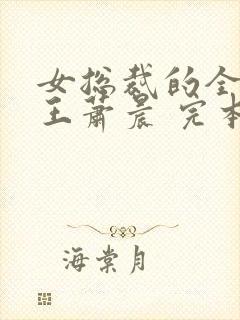 女总裁的全
王萧晨 完本
海棠月